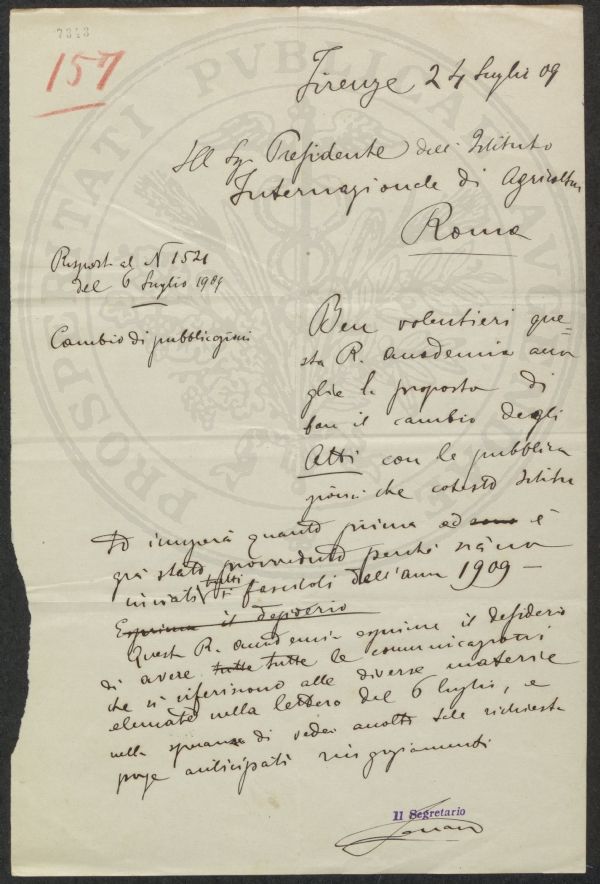 7343
157
Firenze 24 luglio 09
Ill Sgr Presidente dell' Istituto
Internazionale di Agricoltura
Roma
Risposta al N 1521
del 6 luglio 1909
Cambio di pubblicazioni
Ben volentieri que=
sta R. accademia acco
glie la proposta di
fare il cambio degli
Atti con le pubblica
zioni che cotesto Istitu
to imprerà quanto prima ed sono è
già stato provveduto perchè siano
inviati tutti i fascicoli dell'anno 1909 —
Esprima il desiderio
Questa R. accademia esprime il desiderio
di avere tutte tutte le comunicazioni
che si riferiscono alle diverse materie
elencate nella lettera del 6 luglio, e
nella speranza di veder accolta tale richiesta
porge anticipati ringraziamenti
Il Segretario
PROSPERITATI PUBLICAE